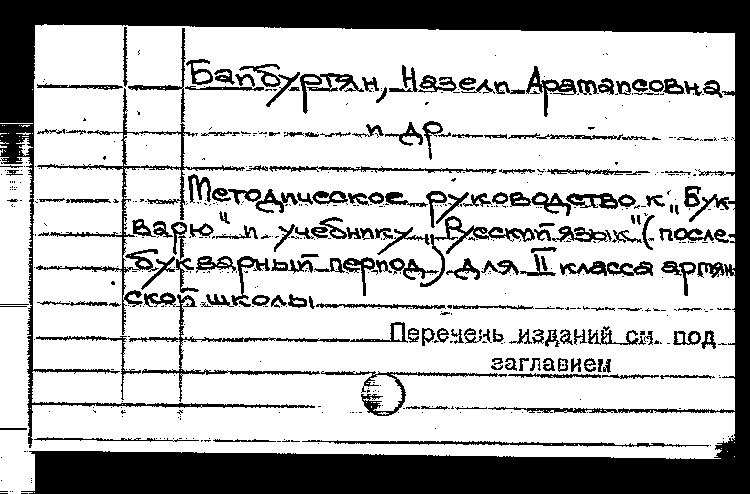 Байбуртян, Назели Арташесовна
и др
Методическое руководство к „Бук-
варю" и учебнику „Русский язык" (после-
букварный период) для II класса армян-
ской школы
Перечень изданий см. под
заглавием